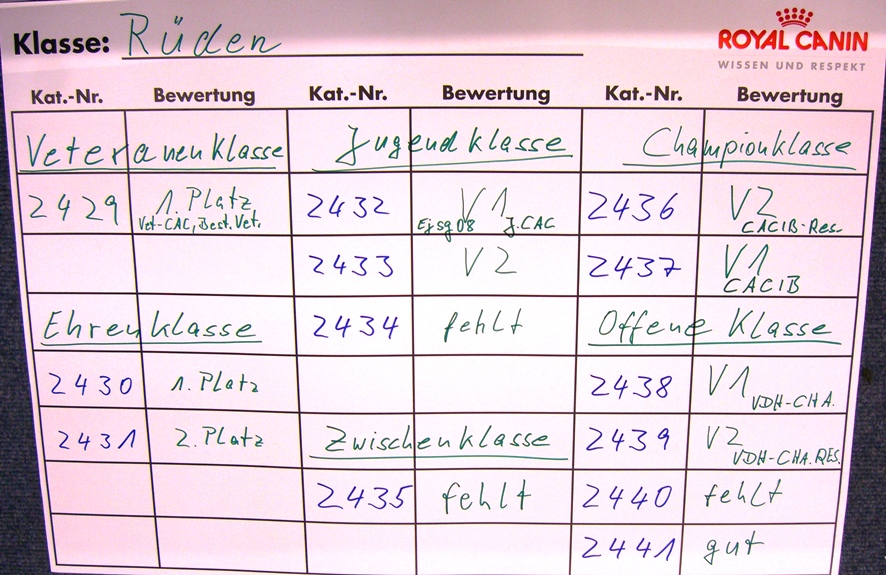 Klasse: Rüden
ROYAL CANIN
WISSEN UND RESPEKT
Kat.-Nr. Bewertung Kat.-Nr. Bewertung Kat.-Nr. Bewertung
Veteranenklasse Jugendklasse Championklasse
2429 1. Platz 2432 V1 2436 V2
Vet-CAC, Best. Vet. Ejsg 08 J. CAC CACIB-Res.
2433 V2 2437 V1
CACIB
Ehrenklasse 2434 fehlt Offene Klasse
2430 1. Platz 2438 V1
VDH-CHA.
2431 2. Platz Zwischenklasse 2439 V2
VDH-CHA.RES.
2435 fehlt 2440 fehlt
2441 gut